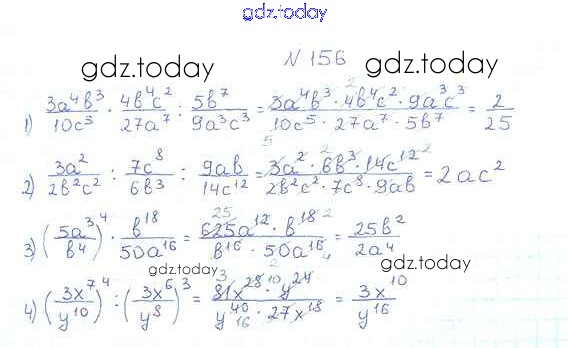 gdz.today
N 156
gdz.today gdz.today
1) 3a⁴b³/10c⁵ · 4b⁴c²/27a⁷ : 5b⁷/9a³c³ = 3a⁴b³ · 4b⁴c² · 9a³c³/10c⁵ · 27a⁷ · 5b⁷ = 2/25
2) 3a²/2b²c² : 7c⁸/6b³ : 9ab/14c¹² = 3a² · 6b³ · 14c¹²/2b²c² · 7c⁸ · 9ab = 2ac²
3) (5a³/b⁴)⁴ · b¹⁸/50a¹⁶ = 625a¹² · b¹⁸/b¹⁶ · 50a¹⁶ = 25b²/2a⁴
gdz.today gdz.today
4) (3x⁷/y¹⁰)⁴ : (3x⁶/y⁸)³ = 81x²⁸ · y²⁴/y⁴⁰ · 27x¹⁸ = 3x¹⁰/y¹⁶